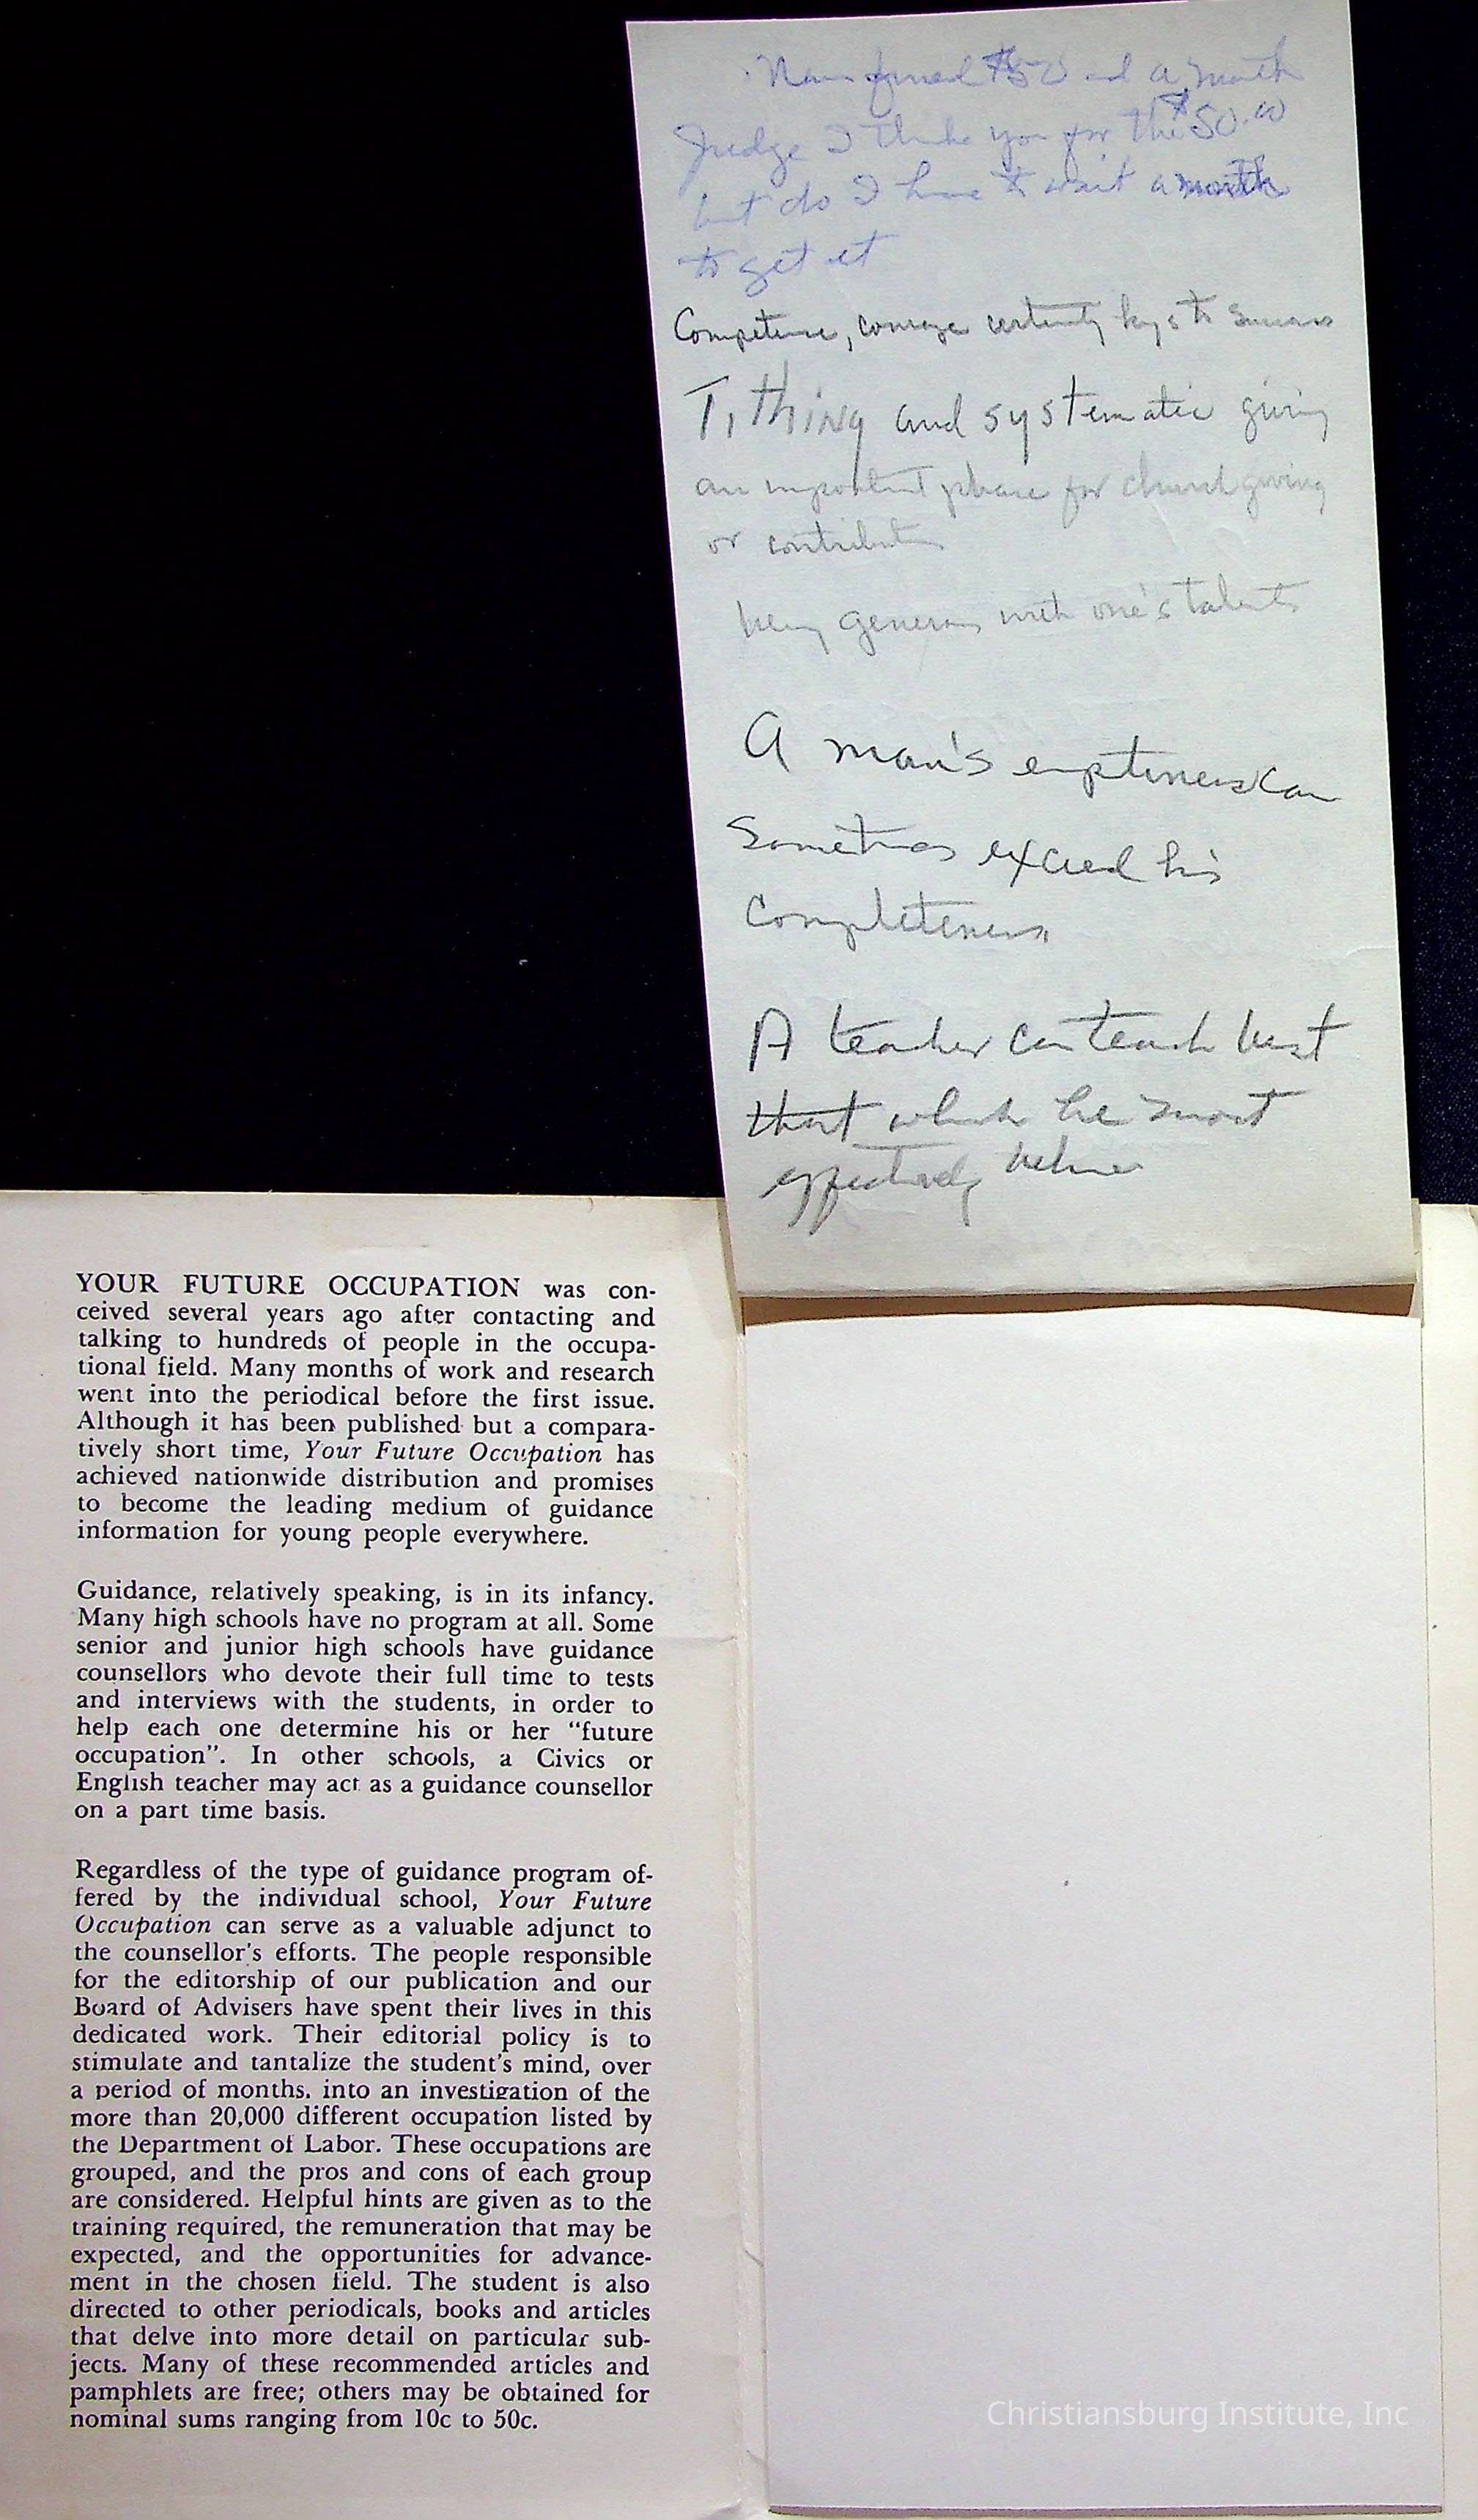 Man fined $50 and a month
Judge I thank you for the $50.00
but do I have to wait a month
to get it
Competence, courage certainty keys to success
Tithing and systematic giving
an important phase for church giving
or contribution
being generous with one's talents
A man's emptiness can
sometimes exceed his
completeness
A teacher can teach best
that which he most
effectively
YOUR FUTURE OCCUPATION was con-
ceived several years ago after contacting and
talking to hundreds of people in the occupa-
tional field. Many months of work and research
went into the periodical before the first issue.
Although it has been published but a compara-
tively short time, Your Future Occupation has
achieved nationwide distribution and promises
to become the leading medium of guidance
information for young people everywhere.
Guidance, relatively speaking, is in its infancy.
Many high schools have no program at all. Some
senior and junior high schools have guidance
counsellors who devote their full time to tests
and interviews with the students, in order to
help each one determine his or her “future
occupation”. In other schools, a Civics or
English teacher may act as a guidance counsellor
on a part time basis.
Regardless of the type of guidance program of-
fered by the individual school, Your Future
Occupation can serve as a valuable adjunct to
the counsellor's efforts. The people responsible
for the editorship of our publication and our
Board of Advisers have spent their lives in this
dedicated work. Their editorial policy is to
stimulate and tantalize the student's mind, over
a period of months, into an investigation of the
more than 20,000 different occupation listed by
the Department of Labor. These occupations are
grouped, and the pros and cons of each group
are considered. Helpful hints are given as to the
training required, the remuneration that may be
expected, and the opportunities for advance-
ment in the chosen field. The student is also
directed to other periodicals, books and articles
that delve into more detail on particular sub-
jects. Many of these recommended articles and
pamphlets are free; others may be obtained for
nominal sums ranging from 10c to 50c.
Christiansburg Institute, Inc